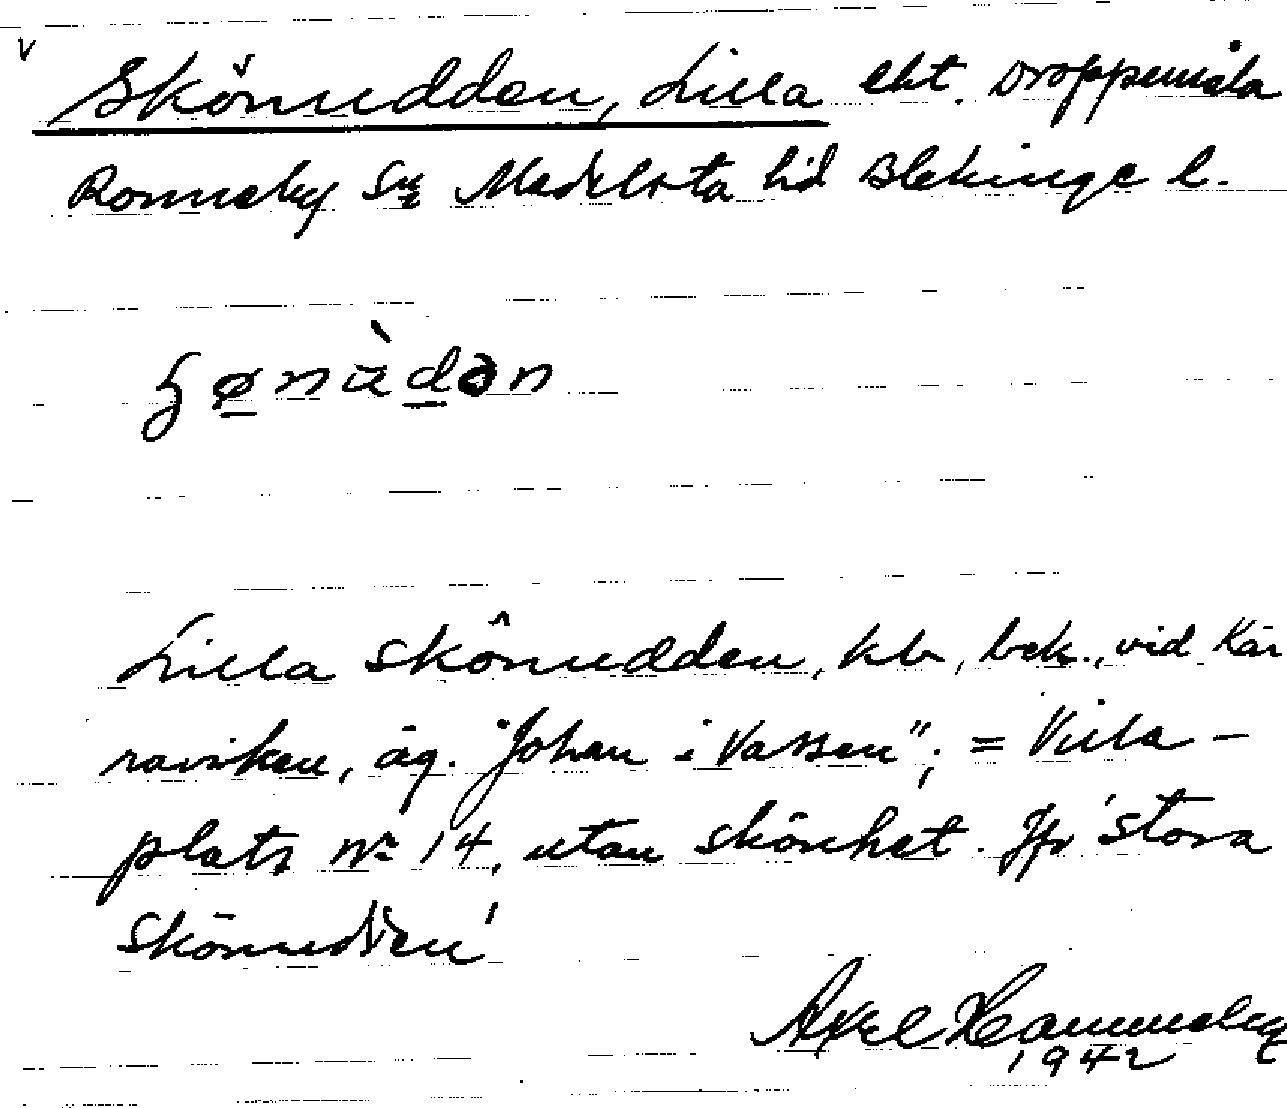 v
Skönudden, Lilla ekt. Droppemåla
Ronneby Sn Medelsta hd Blekinge l.
Lilla Skönudden, kb, bek., vid Kär
raviken, äg. "Johan i Vassen"; = Villa-
plats No 14, utan skönhet. Jfr 'Stora
Skönudden'
Axel Hammeleg
1942